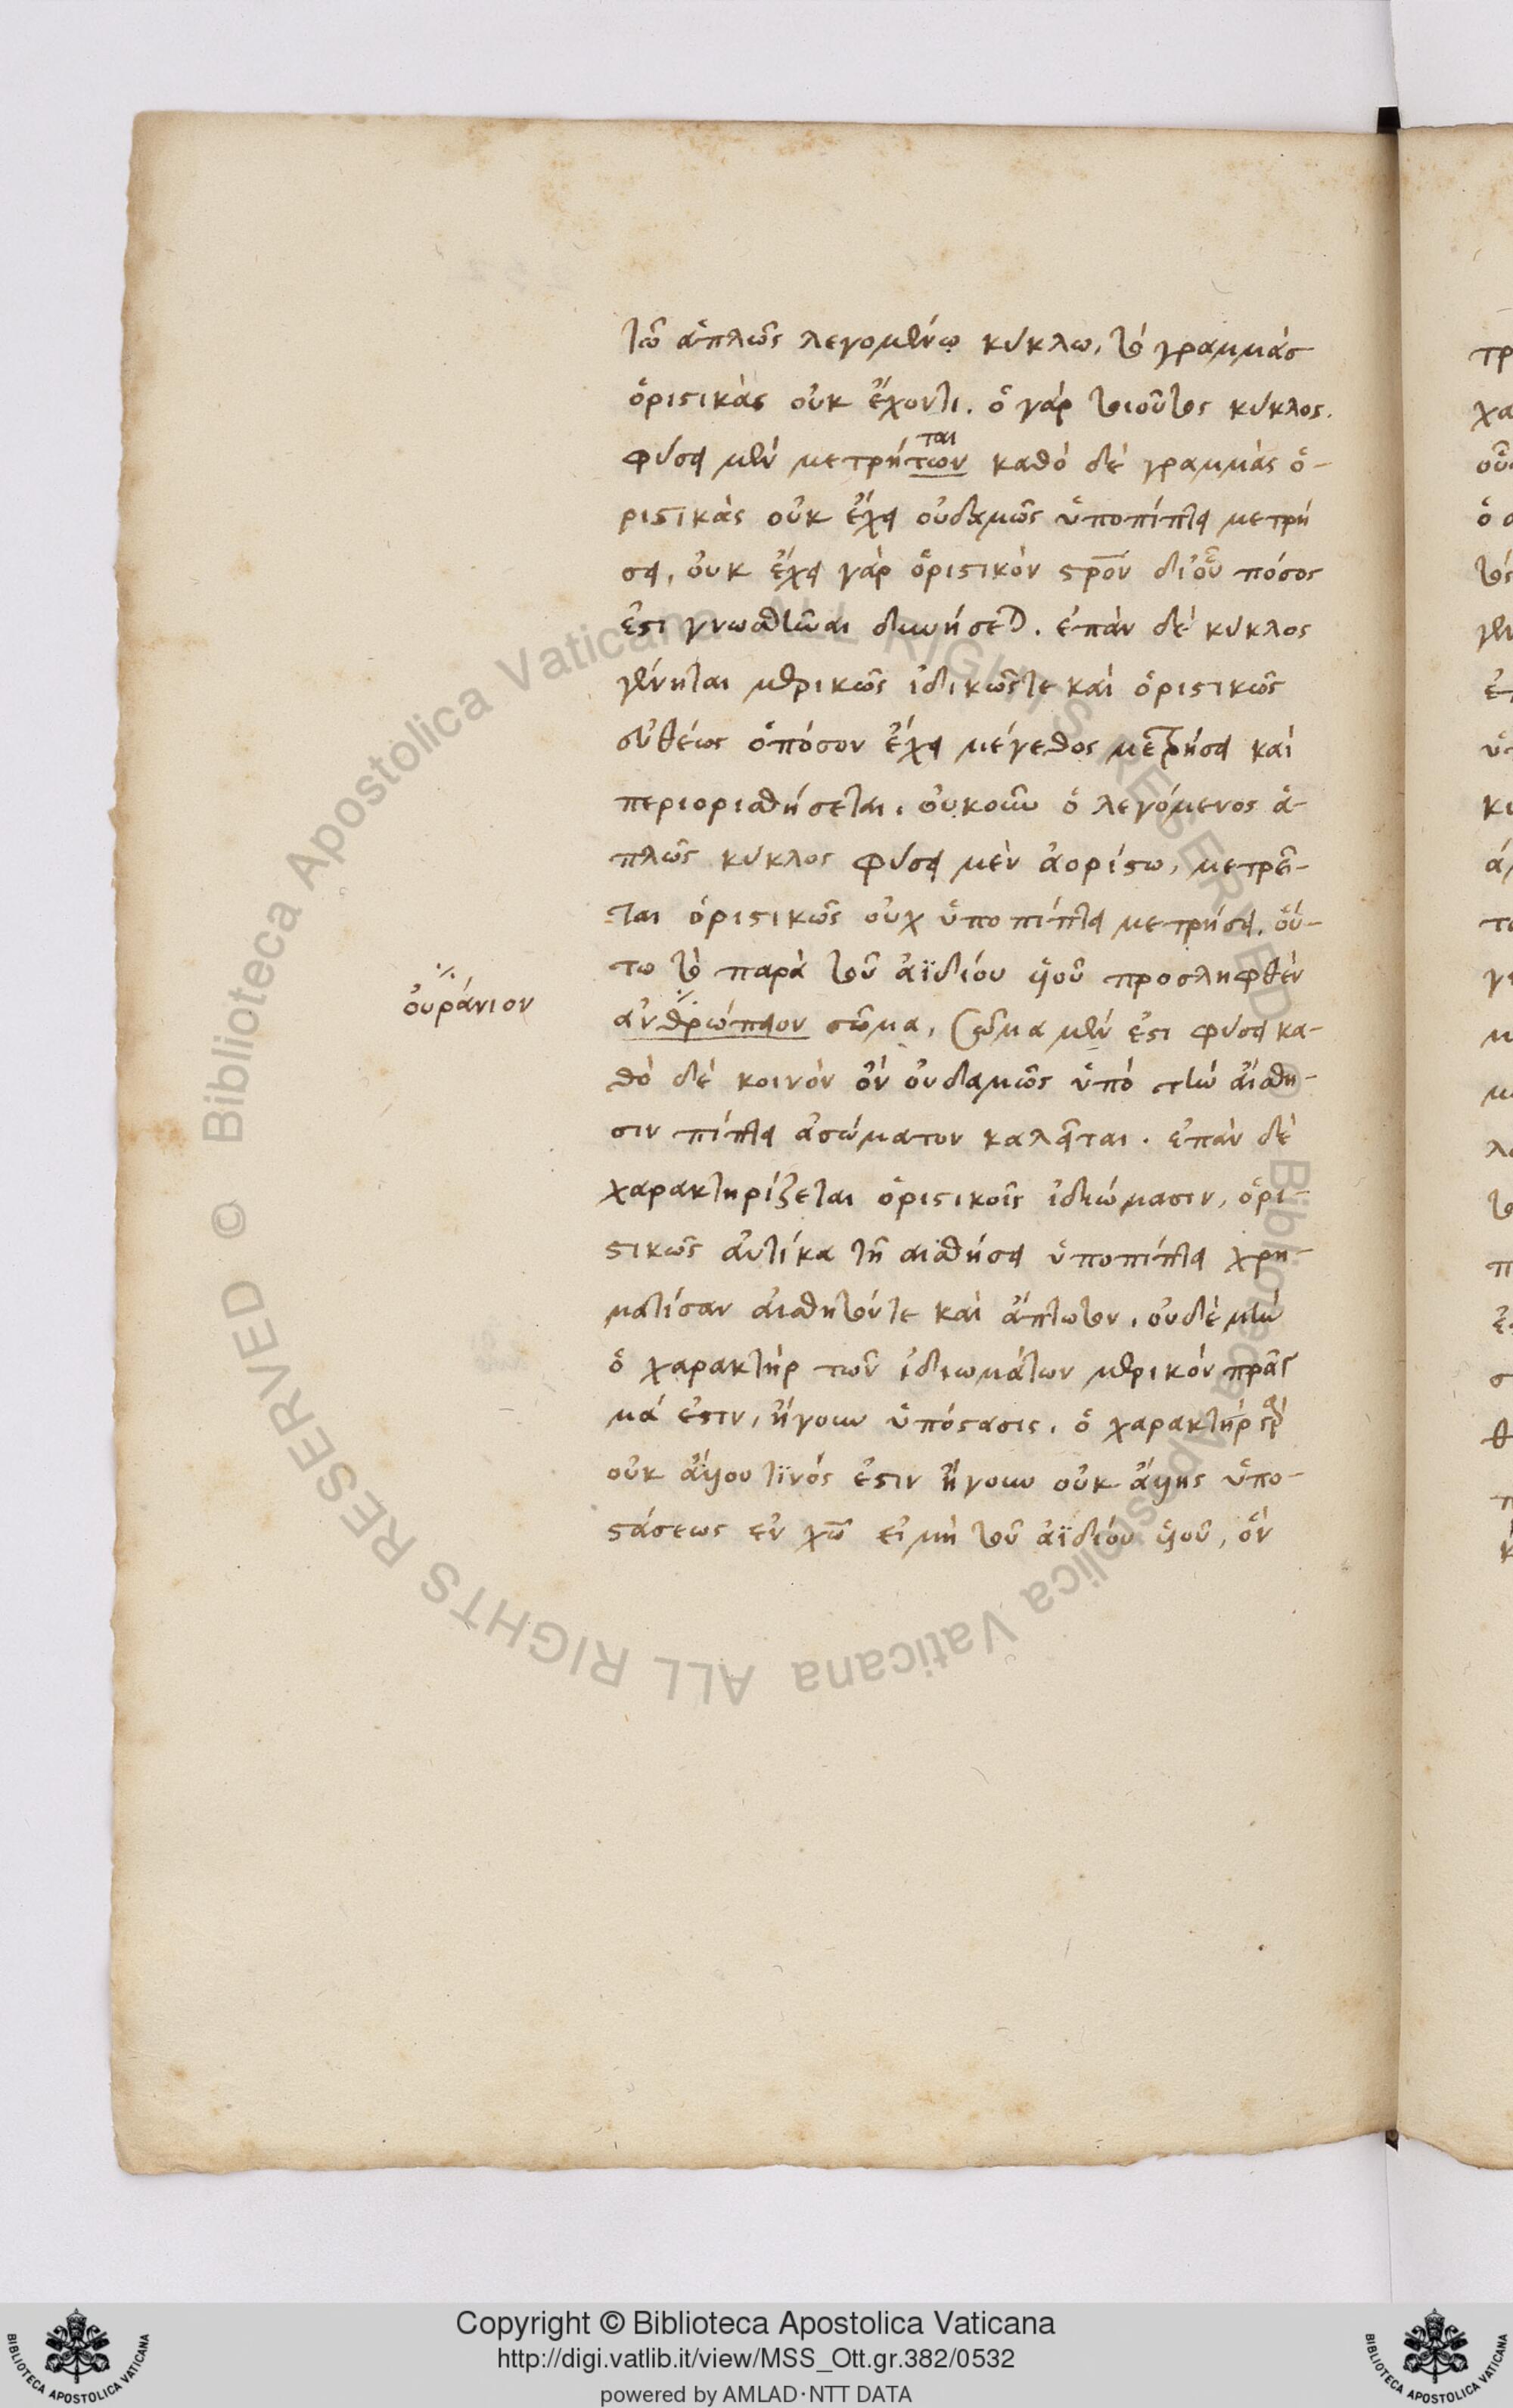 τῶ ἁπλῶς λεγομένῳ κύκλω, τὸ γραμμὰς
ὁριστικὰς οὐκ ἔχοντι. ὁ γὰρ τοιοῦτος κύκλος.
φύσει μὲν μετρητων καθὸ δὲ γραμμὰς ὁ-
ται
ριστικὰς οὐκ ἔχει οὐδαμῶς ὑποπίπτει μετρή
σει, οὐκ ἔχει γὰρ ὁριστικὸν δι' οὗ πόσος
ἐστι γνωσθῆναι δυνήσεται. ἐπὰν δὲ κύκλος
γένηται μερικῶς ἰδικῶς τε καὶ ὁριστικῶς
εὐθέως ὁπόσον ἔχει μέγεθος μετρήσει καὶ
περιορισθήσεται. οὐκοῦν ὁ λεγόμενος ἁ-
πλῶς κύκλος φύσει μὲν ἀορίστω, μετρεῖ-
ται ὁριστικῶς οὐχ ὑποπίπτει μετρήσει. οὕ-
τω τὸ παρὰ τοῦ ἀϊδίου υἱοῦ προσληφθὲν
οὐράνιον
ἀνθρώπειον σῶμα, σῶμα μέν ἐστι φύσει κα-
θὸ δὲ κοινὸν ὂν οὐδαμῶς ὑπὸ τὴν αἴσθη-
σιν πίπτει ἀσώματον καλεῖται. ἐπὰν δὲ
χαρακτηρίζεται ὁριστικοῖς ἰδιώμασιν, ὁρι-
στικῶς αὐτίκα τῇ αἰσθήσει ὑποπίπτει χρη-
ματίσαν αἰσθητόν τε καὶ ἁπτωτον. οὐδὲ μὴν
ὁ χαρακτὴρ τῶν ἰδιωμάτων μερικὸν πρᾶγ
μά ἐστιν, ἤγουν ὑπόστασις. ὁ χαρακτὴρ
οὐκ ἄλλου τινός ἐστιν ἤγουν οὐκ ἄλλης ὑπο-
στάσεως ἐν χῶ εἰ μὴ τοῦ ἀϊδίου υἱοῦ, ὃν
Copyright © Biblioteca Apostolica Vaticana
http://digi.vatlib.it/view/MSS_Ott.gr.382/0532
powered by AMLAD·NTT DATA